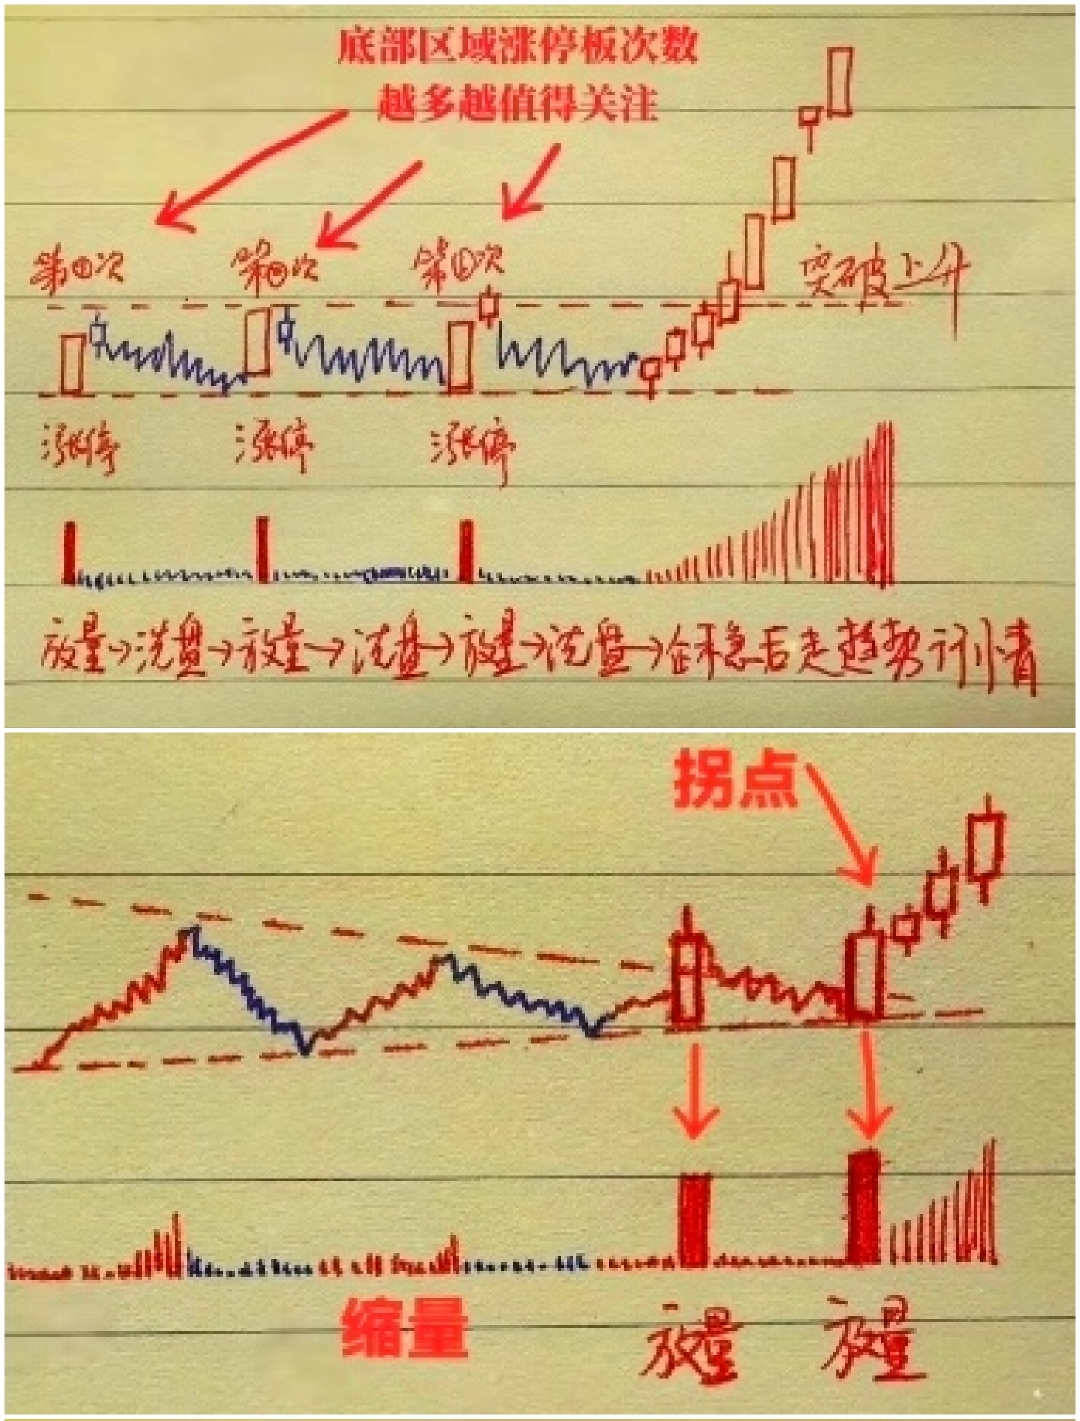 底部区域涨停板次数
越多越值得关注
第①次 第②次 第③次
突破上升
涨停 涨停 涨停
放量→洗盘→放量→洗盘→放量→洗盘→企稳后走趋势行情
拐点
缩量
放量 放量